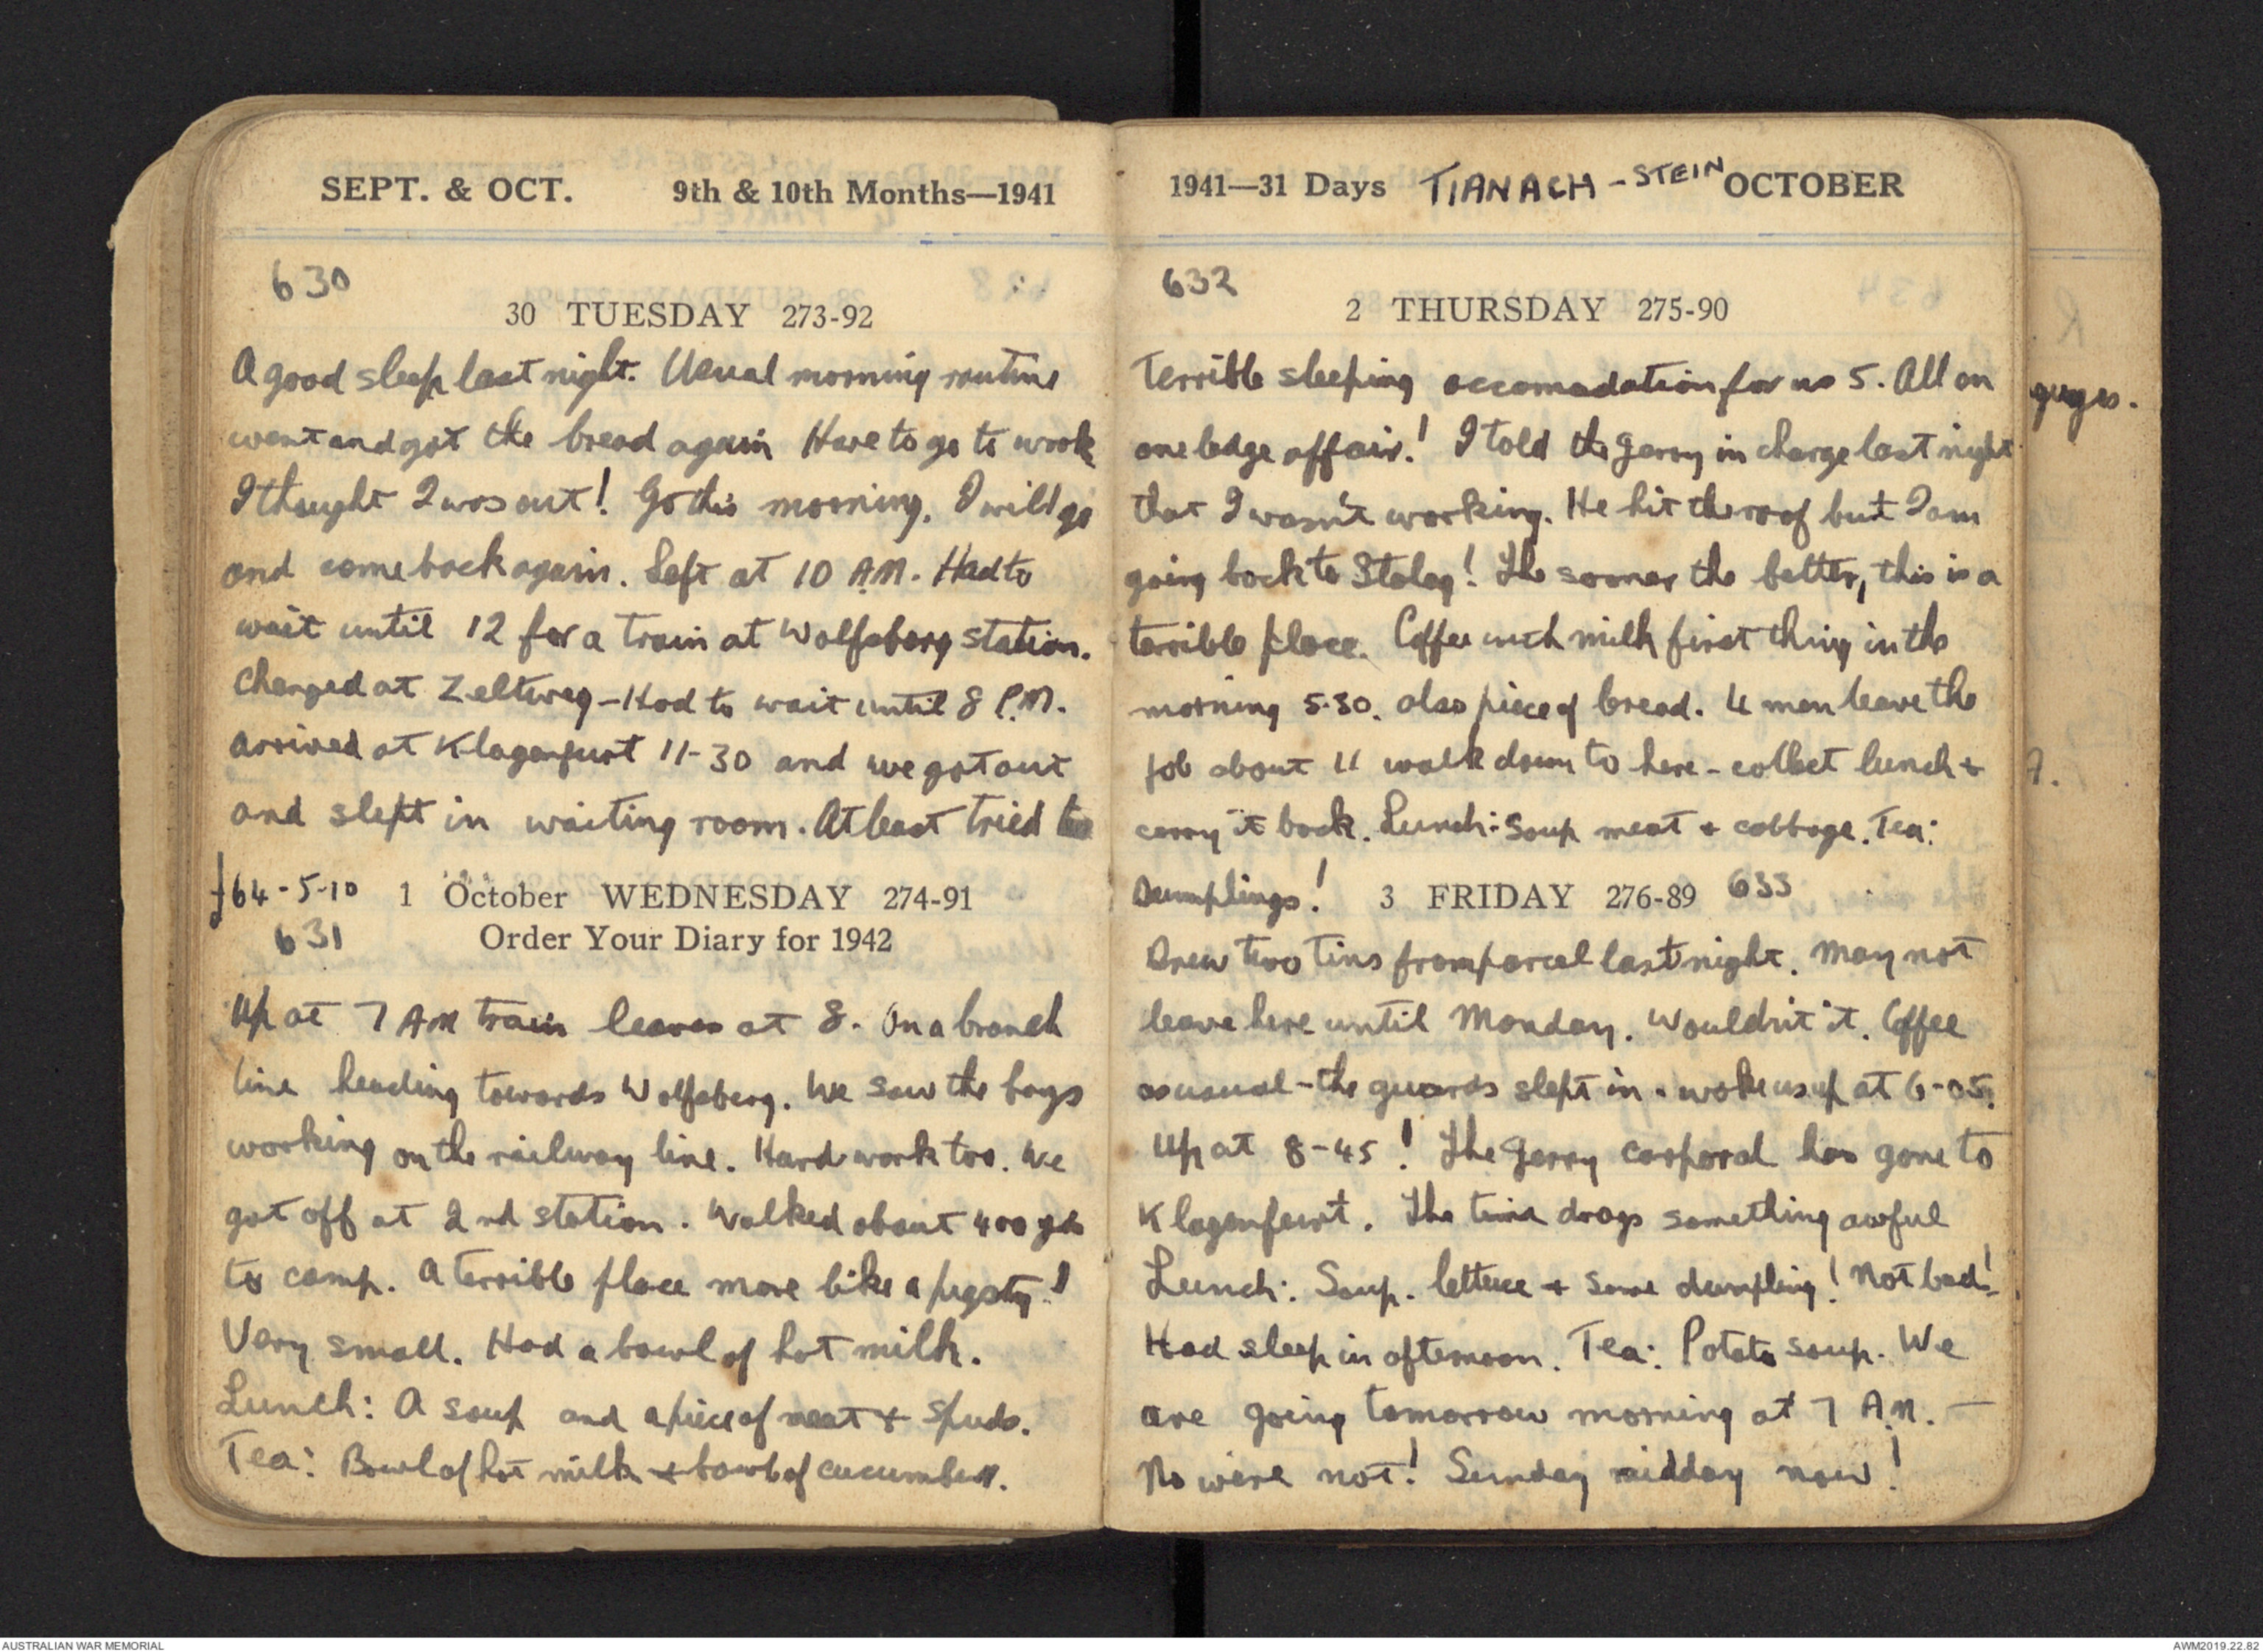 SEPT. & OCT. 9th & 10th Months—1941
630
30 TUESDAY 273-92
A good sleep last night. Usual morning routine
went and got the bread again Have to go to work
I thought I was out! Go this morning. I will go
and come back again. Left at 10 A.M. Had to
wait until 12 for a train at Wolfsberg station.
Changed at Zeltweg - Had to wait until 8 P.M.
arrived at Klagenfurt 11-30 and we got out
and slept in waiting room. At least tried to
£64-5-10 1 October WEDNESDAY 274-91
631 Order Your Diary for 1942
Up at 7 AM train leaves at 8. On a branch
line heading towards Wolfsberg. We saw the boys
working on the railway line. Hard work too. We
got off at 2nd station. Walked about 400 yds
to camp. A terrible place more like a pigsty!
Very small. Had a bowl of hot milk.
Lunch: A soup and a piece of meat + spuds.
Tea: Bowl of hot milk + bowl of cucumbers.
1941—31 Days TIANACH - STEIN OCTOBER
632
2 THURSDAY 275-90
Terrible sleeping accomadation for us 5. All on
one ledge affair! I told the Gerry in charge last night
that I wasn't working. He hit the roof but I am
going back to Stalag! The sooner the better, this is a
terrible place. Coffee with milk first thing in the
morning 5.30. also piece of bread. 4 men leave the
job about 11 walk down to here - collect lunch +
carry it back. Lunch: Soup meat + cabbage. Tea:
Dumplings! 3 FRIDAY 276-89 633
Drew two tins from parcel last night. May not
leave here until Monday. Wouldn't it. Coffee
as usual - the guards slept in. woke us up at 6-05.
Up at 8-45! The Gerry corporal has gone to
Klagenfurt. The time drags something awful
Lunch: Soup. lettuce + some dumpling! Not bad!
Had sleep in afternoon. Tea: Potato soup. We
are going tomorrow morning at 7 A.M. —
No were not! Sunday midday now!
AUSTRALIAN WAR MEMORIAL
AWM2019.22.82